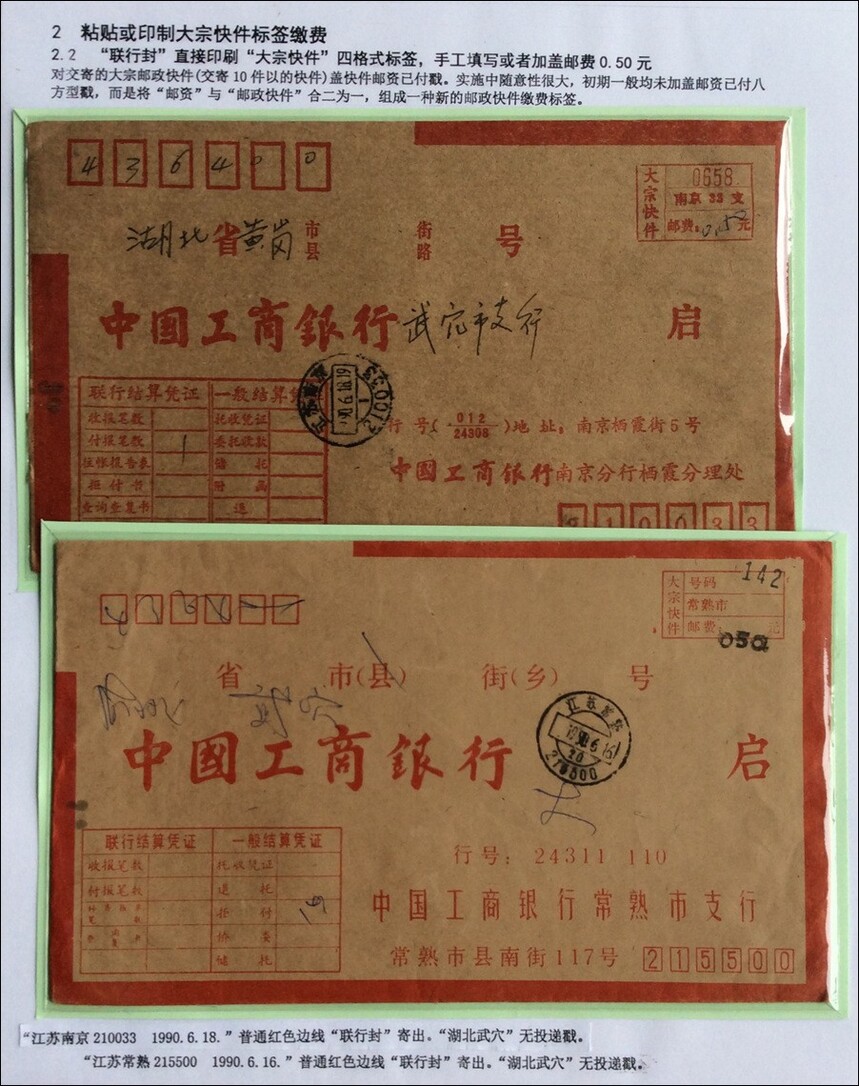 2 粘贴或印制大宗快件标签缴费
2.2 “联行封”直接印刷“大宗快件”四格式标签，手工填写或者加盖邮费0.50元
对交寄的大宗邮政快件(交寄10件以的快件)盖快件邮资已付戳。实施中随意性很大，初期一般均未加盖邮资已付八
方型戳，而是将“邮资”与“邮政快件”合二为一，组成一种新的邮政快件缴费标签。
436400
大宗快件
0658
南京 33 支
邮费：0.50元
湖北 省 黄岗 市县 街路 号
中国工商银行 武穴市支行 启
联行结算凭证 一般结算凭
收报笔数 托收凭证
付报笔数 1 委托收款
拒付书
查询查复书
90.6.18.19
行号(012/24308)地址：南京栖霞街5号
中国工商银行南京分行栖霞分理处
210033
大宗快件
号码 142
常熟市
邮费 元
050
省 市(县) 街(乡) 号
武穴
中国工商银行 启
江苏常熟
215500
联行结算凭证 一般结算凭证
收报笔数 托收凭证
付报笔数 退托
拒付
行号：24311 110
中国工商银行常熟市支行
常熟市县南街117号 215500
“江苏南京210033 1990.6.18.”普通红色边线“联行封”寄出。“湖北武穴”无投递戳。
“江苏常熟215500 1990.6.16.”普通红色边线“联行封”寄出。“湖北武穴”无投递戳。